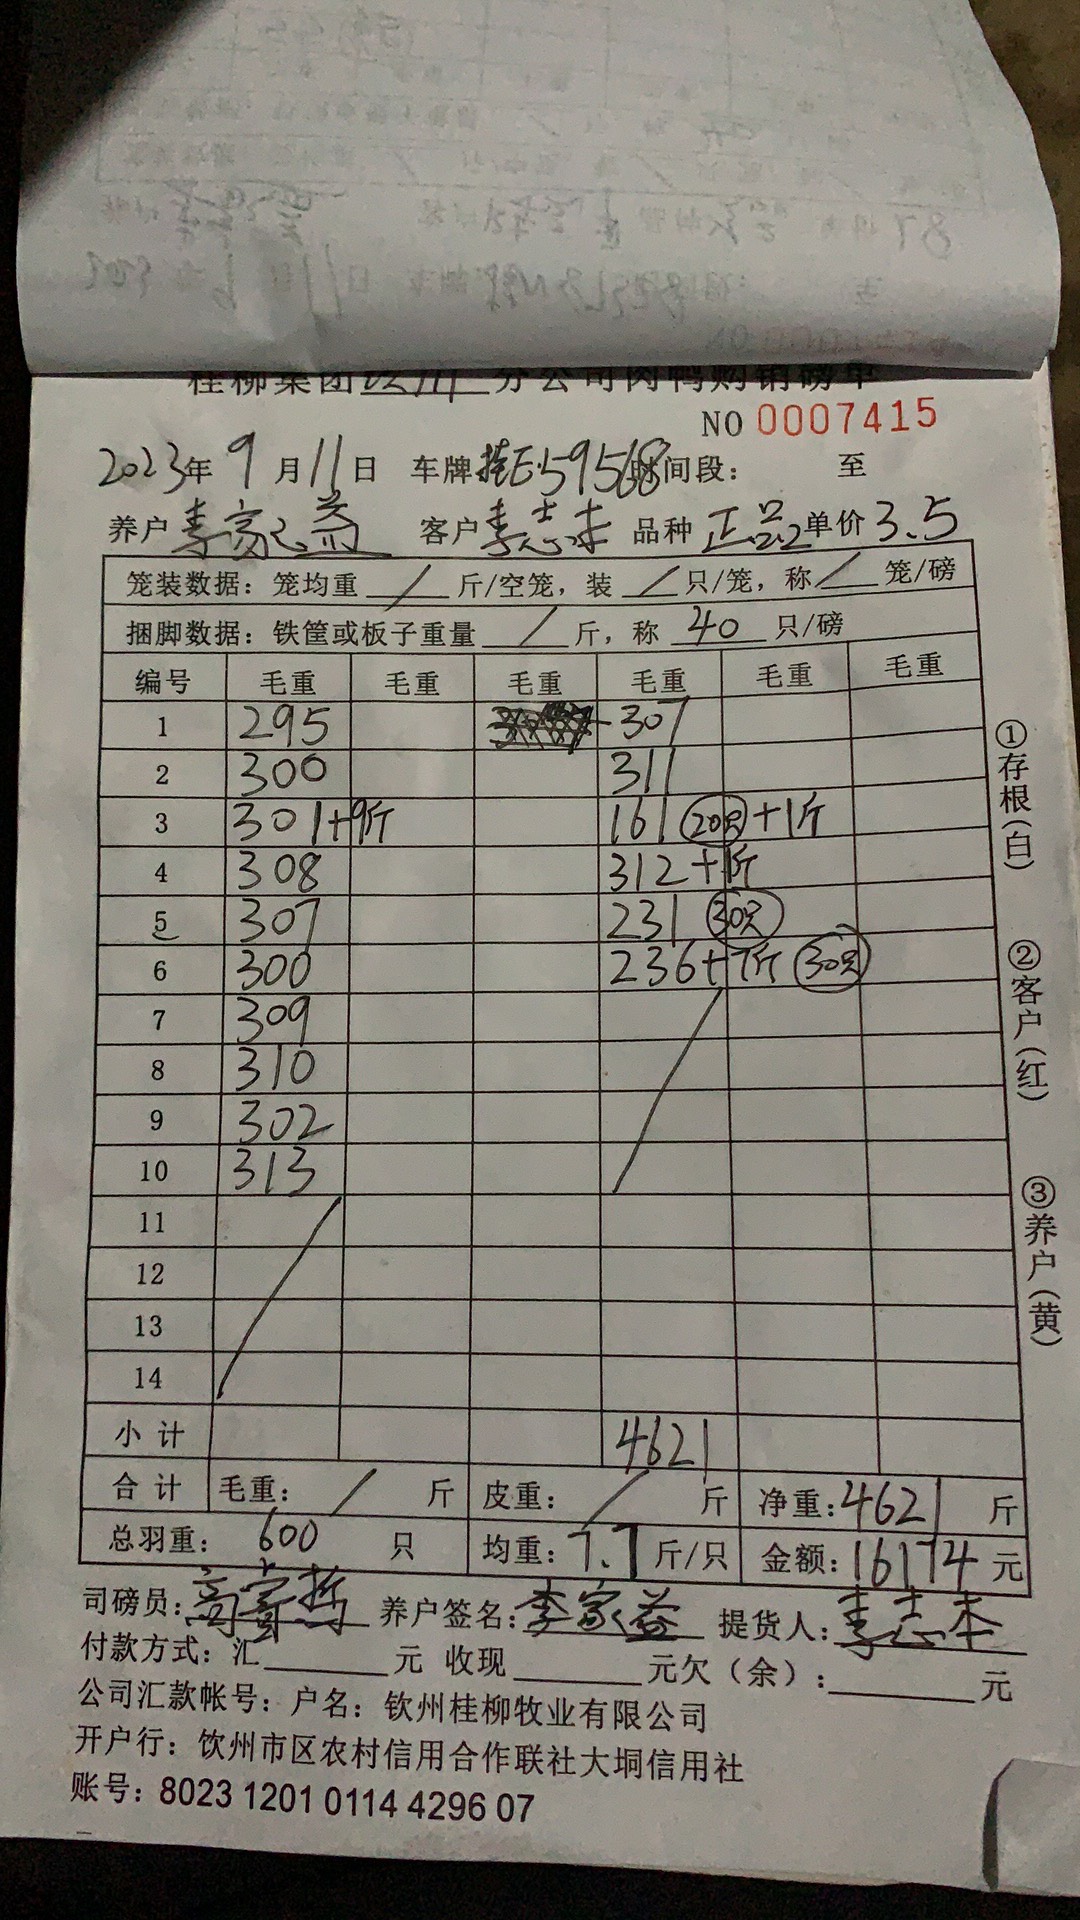 桂柳集团 分公司肉鸭购销磅单
NO 0007415
2023年 9月 11日 车牌 桂E59568 时间段： 至
养户 李家益 客户 李志本 品种 正品2 单价 3.5
笼装数据：笼均重 / 斤/空笼，装 / 只/笼，称 / 笼/磅
捆脚数据：铁筐或板子重量 / 斤，称 40 只/磅
编号 毛重 毛重 毛重 毛重 毛重 毛重
1 295 307
2 300 311
3 301+9斤 161 20只 +1斤
4 308 312+1斤
5 307 231 30只
6 300 236+7斤 30只
7 309
8 310
9 302
10 313
11
12
13
14
小计 4621
合计 毛重： / 斤 皮重： / 斤 净重：4621 斤
总羽重： 600 只 均重：7.7 斤/只 金额：16174 元
司磅员： 养户签名：李家益 提货人：李志本
付款方式：汇 元 收现 元欠（余）： 元
公司汇款帐号：户名：钦州桂柳牧业有限公司
开户行：钦州市区农村信用合作联社大垌信用社
账号：8023 1201 0114 4296 07
①存根（白）
②客户（红）
③养户（黄）